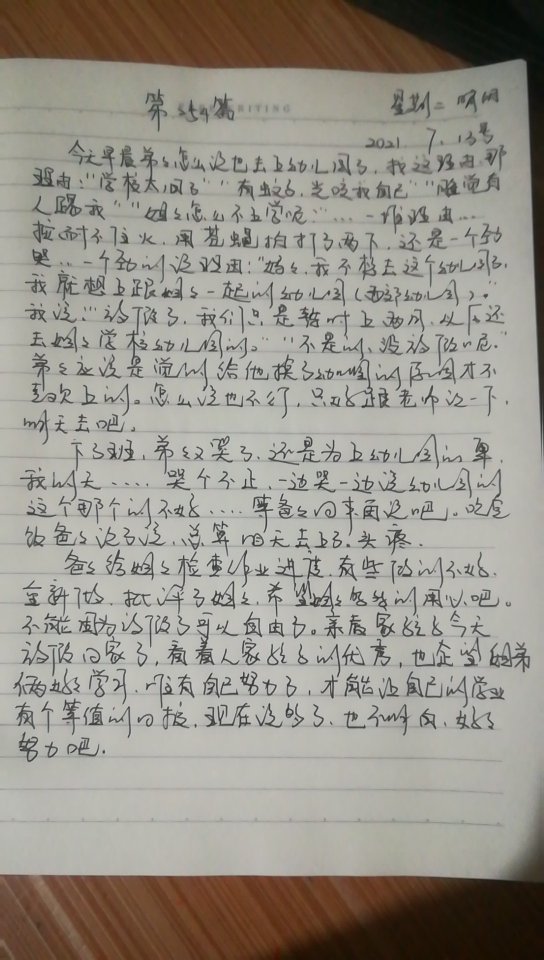 第354篇 RITING 星期二 晴
2021. 7. 13号
今天早晨弟弟怎么说也去上幼儿园了，找这理由那
理由："学校太闷了""有蚊子，光咬我自己""睡觉有
人踢我""姐姐怎么不上学呢？"……一堆理由…
按耐不住火，用苍蝇拍打了两下，还是一个劲
哭…一个劲的说理由："妈妈，我不想去这个幼儿园了，
我就想上跟姐姐一起的幼儿园（西部幼儿园）。"
我说："放假了，我们只是暂时上两月，以后还
去姐姐学校幼儿园的。""不是的，没放假呢。"
弟弟应该是觉的给他换了幼儿园的原因才不
喜欢上的。怎么说也不行，只好跟老师说一下，
明天去吧。
下了班，弟弟又哭了，还是为上幼儿园的事，
我的天……哭个不止，一边哭一边说幼儿园的
这个那个的不好……等爸爸回来再说吧。吃完
饭爸爸说了说，总算明天去上了，头疼.
爸爸给姐姐检查作业进度，有些做的不好，
重新做，批评了姐姐，希望姐姐能好的用心吧。
不能因为放假了可以自由了。亲戚家姐姐今天
放假回家了，看着人家姐姐的优秀，也企望姐弟
俩好好学习，唯有自己努力了，才能让自己的学业
有个等值的回报，现在没够了，也不时向，好好
努力吧.